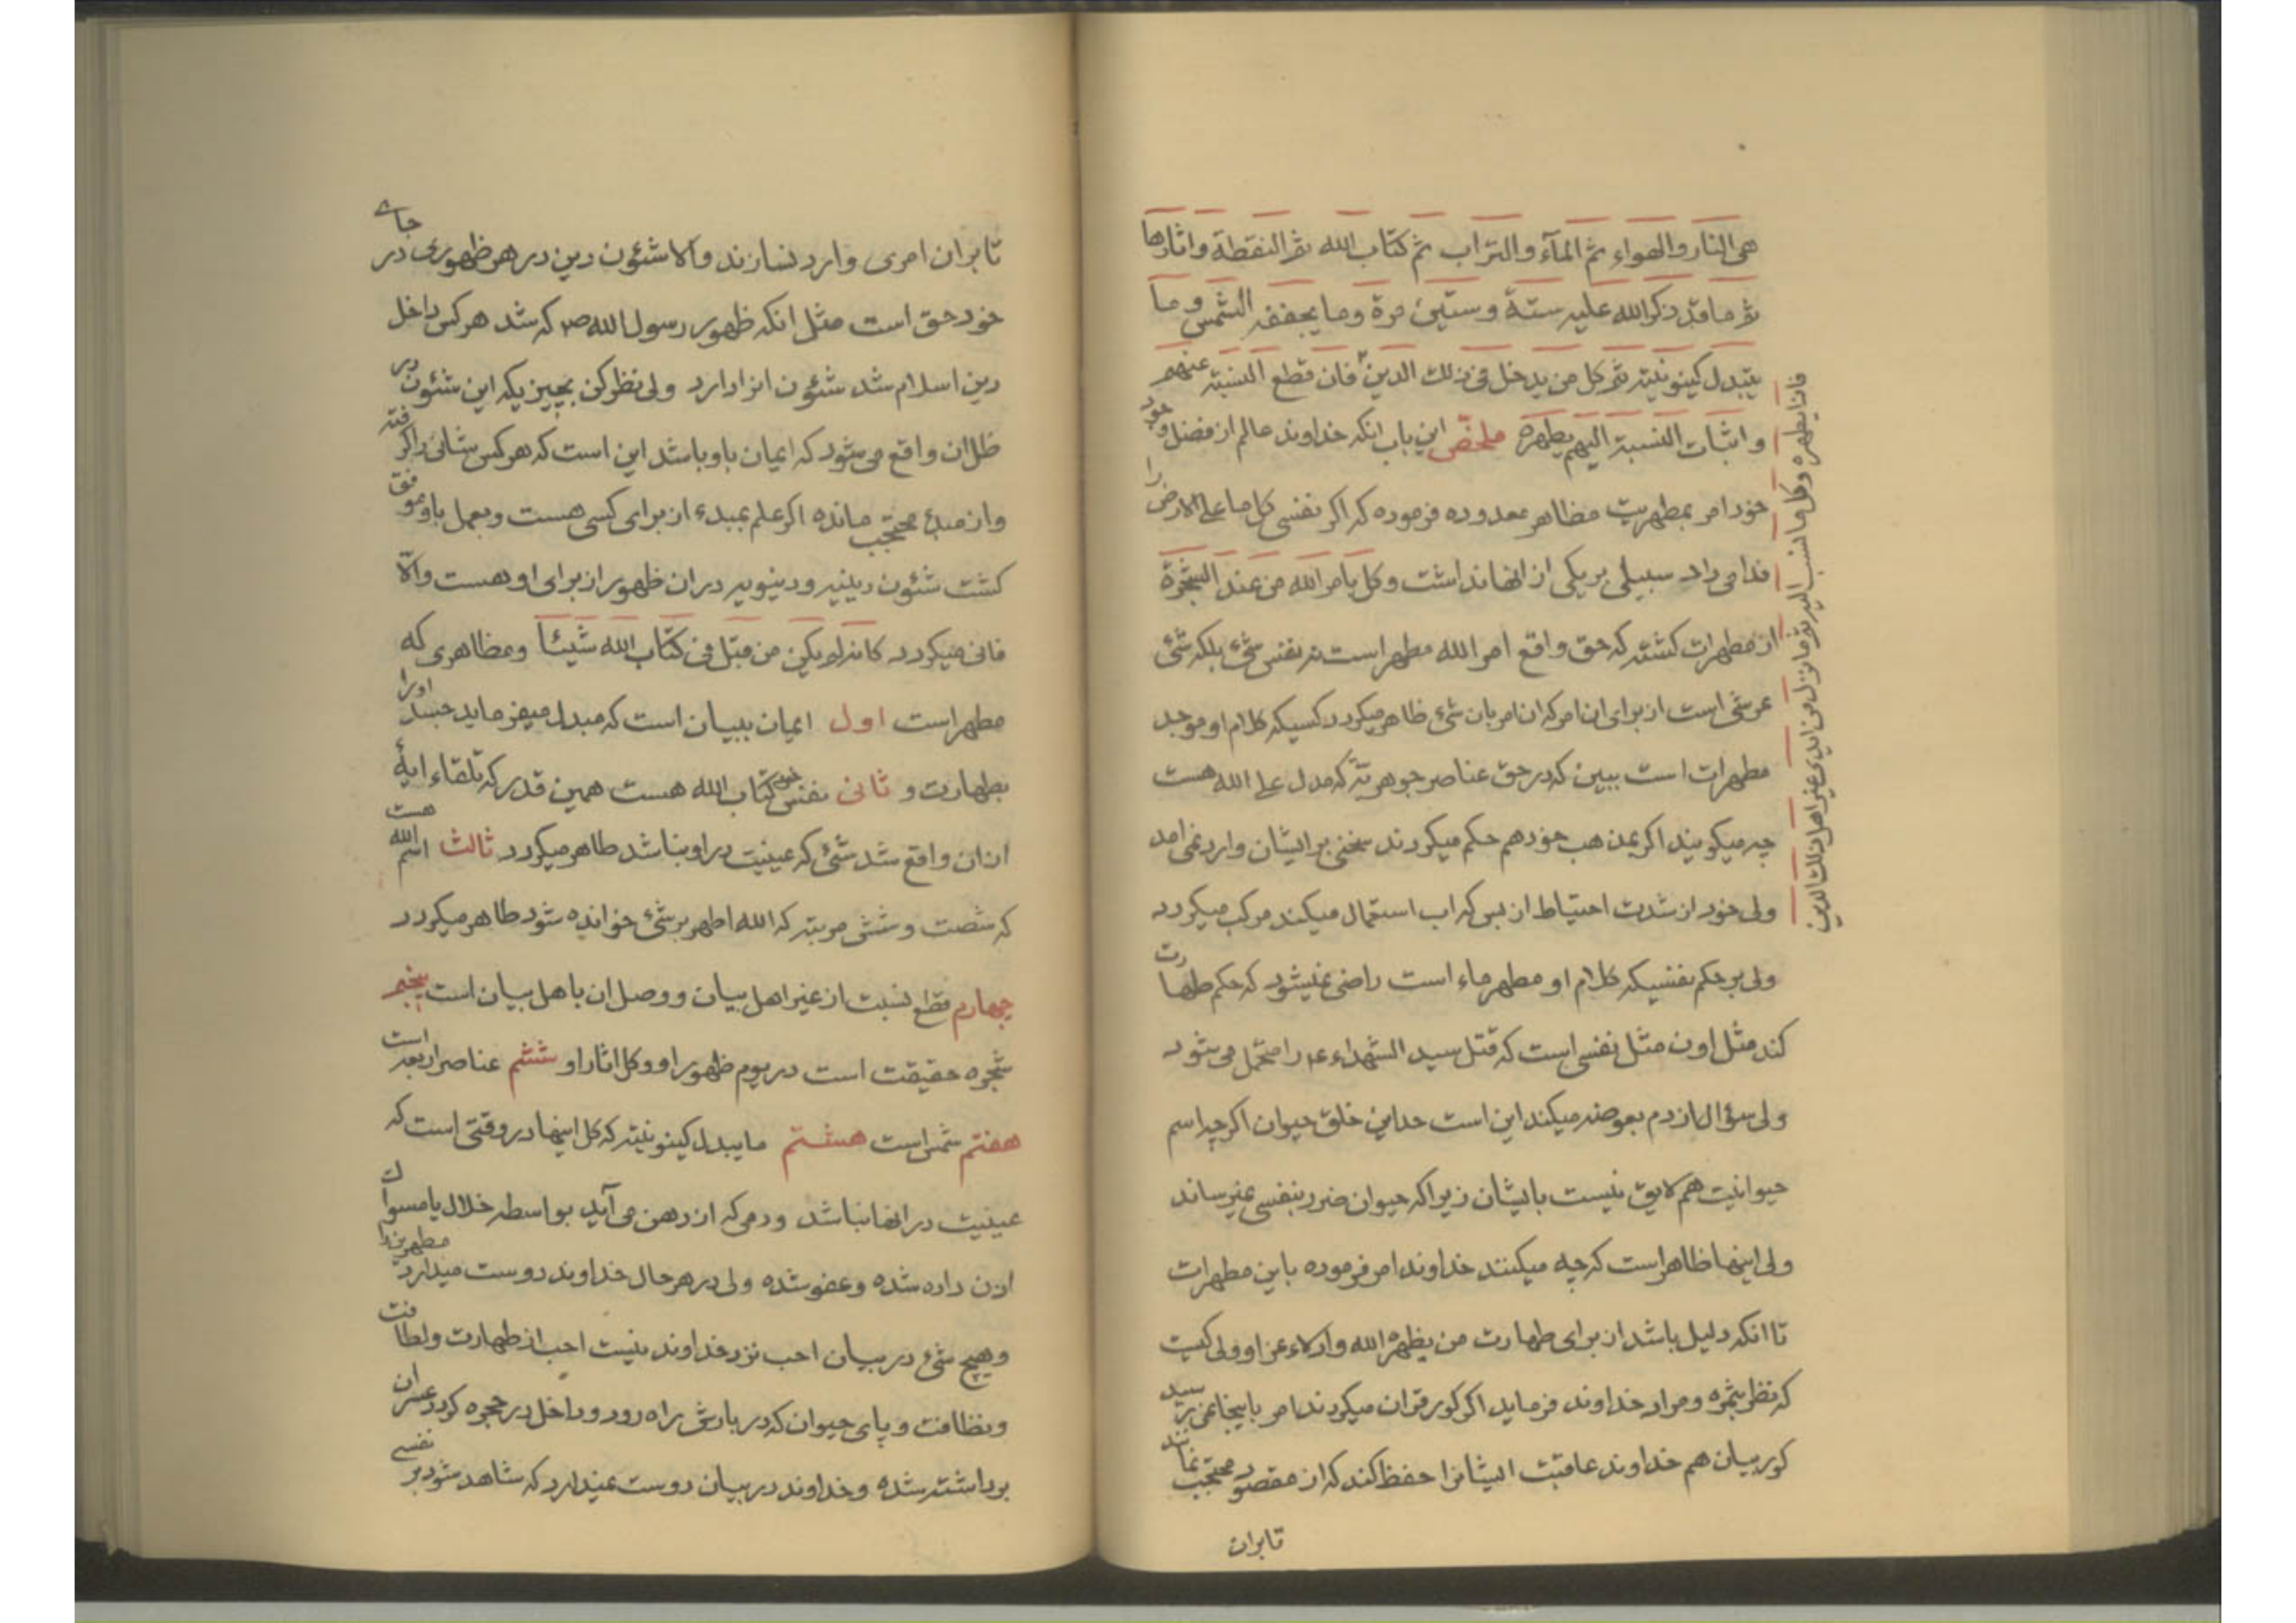 هی النار والهواء ثم المآء والتراب ثم کتاب الله ثم النقطة واثارها
ثم ما قد ذکر الله علیه ستة وستین مرة وما یجففه الشمس وما
یتبدل کینونیته ثم کل من یدخل فی ذلک الدین فان قطع النسبة عنهم
واثبات النسبة الیهم یطهره ملخص این باب انکه خداوند عالم از فضل وجود
خود امر بمطهریت مظاهر معدوده فرموده که اکر نفسی کل ما علی الارض را
فدا می داد سبیلی بر یکی از انها نداشت وکل بامر الله من عند الشجرة
از مطهرات کشته که حق واقع امر الله مطهر است نه نفس شیء بلکه شیء
عرشی است از برای ان امر که ان امر بان شیء ظاهر میکردد کسیکه کلام او موجد
مطهرات است ببین که در حق عناصر جوهریّه که مدل علی الله هست
چه میکویند اکر بمذهب خود هم حکم میکردند سخنی بر ایشان وارد نمی امد
ولی خود از شدت احتیاط از بس که اب استعمال میکند مرکب میکردد
ولی بر حکم نفسیکه کلام او مطهر ماء است راضی نمیشود که حکم طهارت
کند مثل اون مثل نفسی است که قتل سید الشهداء ع را متحمل می شود
ولی سؤال از دم بعوضه میکند این است حد این خلق حیوان اکرچه اسم
حیوانیت هم لایق نیست بایشان زیرا که حیوان ضرر بنفسی نمیرساند
ولی اینها ظاهر است که چه میکنند خداوند امر فرموده باین مطهرات
تا انکه دلیل باشد از برای طهارت من یظهره الله وادلاء عز او ولی کیست
که نظر بثمره ومراد خداوند فرماید اکر کور قران میکردند امر باینجا نمی رسید
کور بیان هم خداوند عاقبت ایشانرا حفظ کند که از مقصود محتجب نمانند
تا بران
فانه یطهره وکل ما نسب الیه ثم ما نزل من ایدی غیر اهل ذلک الدین
تا بران امری وارد نسازند والا شئون دین در هر ظهوری در جای
خود حق است مثل انکه ظهور رسول الله ص که شد هر کس داخل
دین اسلام شد شئون انرا دارد ولی نظر کن بچیزیکه این شئون در
ظل ان واقع می شود که ایمان باو باشد این است که هر کس شانی را کرفته
واز مبدء محتجب مانده اکر علم بمبدء از برای کسی هست وبعمل باو موفق
کشت شئون دینیه ودینویه در ان ظهور از برای او هست والّا
فانی میکردد کانه لم یکن من قبل فی کتاب الله شیئاً ومظاهری که
مطهر است اول ایمان ببیان است که مبدل میفرماید جسد اورا
بطهارت و ثانی نفس خود کتاب الله هست همین قدر که تلقاء ایهٔ
از ان واقع شد شیء که عینیت در او نباشد طاهر میکردد ثالث اسم الله هست
که شصت وشش مرتبه که الله اطهر بر شیء خوانده شود طاهر میکردد
چهارم قطع نسبت از غیر اهل بیان و وصل ان باهل بیان است پنجم
شجره حقیقت است در یوم ظهور او وکل اثار او ششم عناصر اربعه است
هفتم شمس است هشتم ما یبدل کینونیته که کل اینها در وقتی است که
عینیت در انها نباشد ودمی که از دهن می آید بواسطه خلال یا مسواک
اذن داده شده وعفو شده ولی در هر حال خداوند دوست میدارد مطهرین را
وهیچ شیء در بیان احب نزد خداوند نیست احب از طهارت ولطافت
ونظافت وپای حیوان که در بارش راه رود وداخل در حجره کردد عسر ان
برداشته شده وخداوند در بیان دوست نمیدارد که شاهد شود بر نفسی